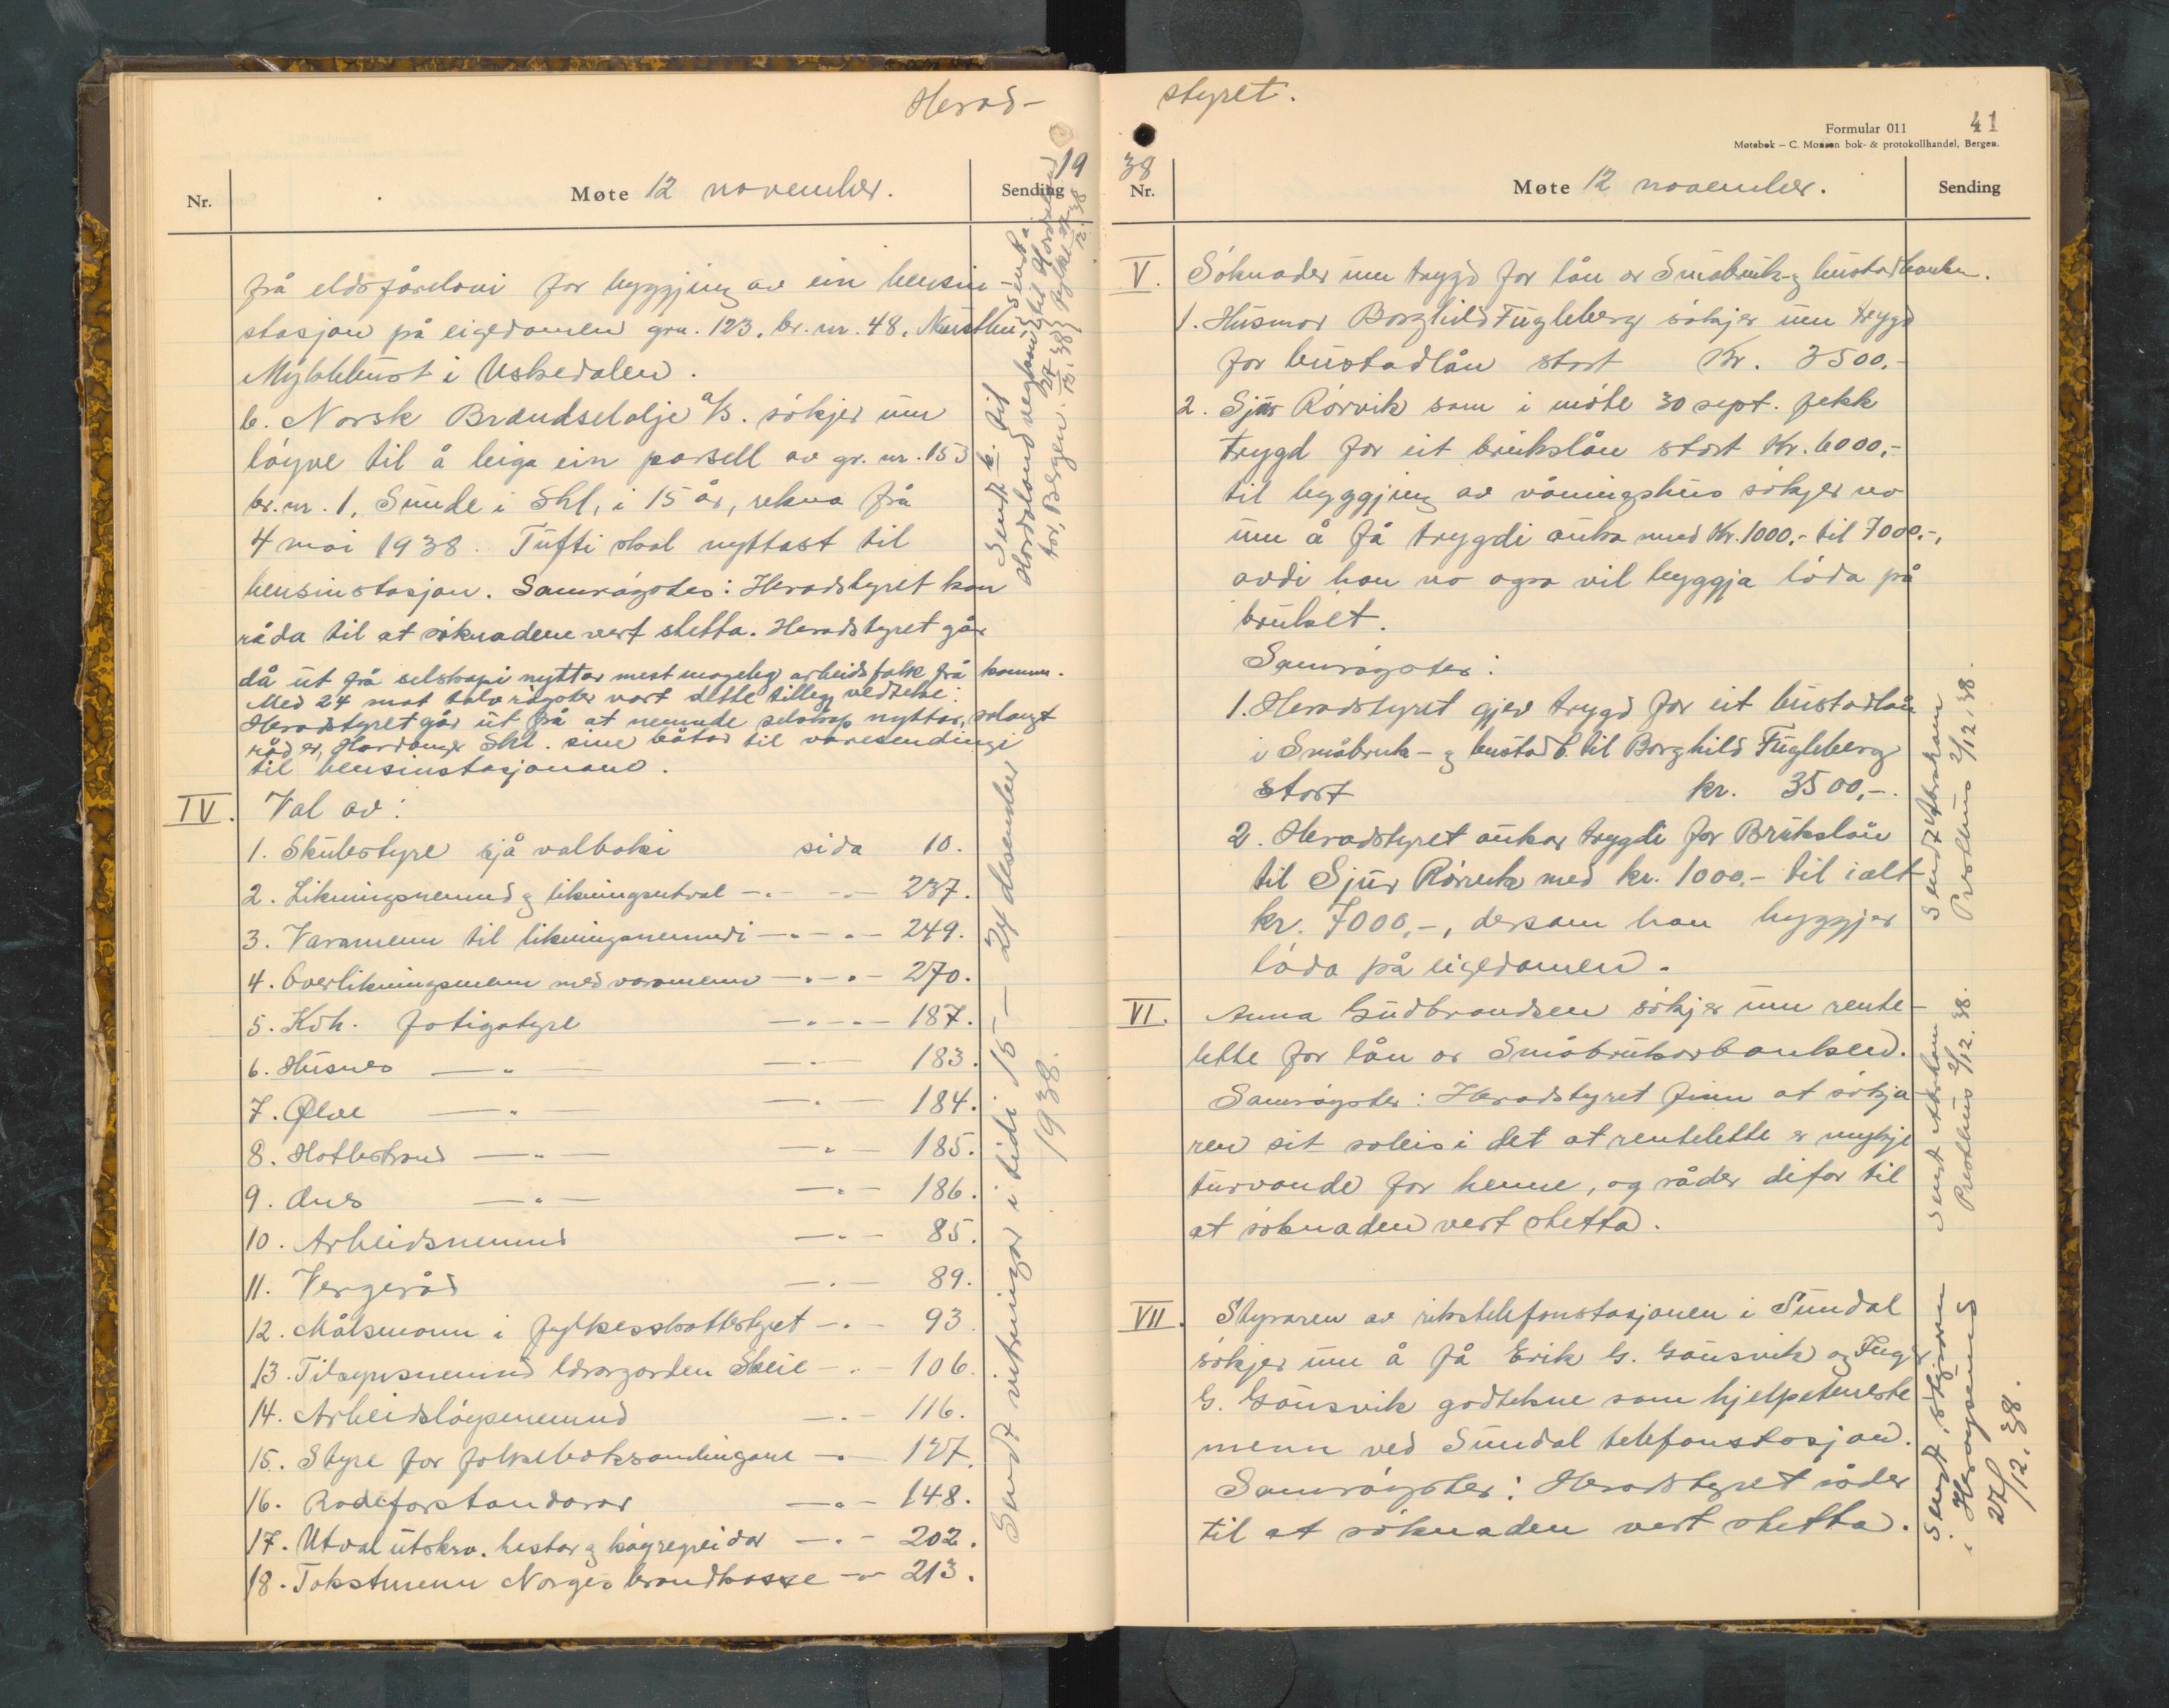 Herad-
19
Nr.
Møte 12 november.
Sending
frå eldsfårelovi for byggjing av ein bensin
stasjon på eigedomen grn. 123. br. nr. 48,
Myklebust i Uskedalen.
b. Norsk Brændselolje a/s. søkjer um
løyve til å leiga ein parsell av gr. nr. 153
br. nr. 1, Sunde i Skl, i 15 år, rekna frå
4 mai 1938. Tufti skal nyttast til
bensinstasjon. Samrøystes: Heradstyret kan
råda til at søknadene vert stetta. Heradstyret går
då ut frå selskapi nyttar mest mogeleg arbeidsfolk frå komm.
Med 24 mot tolv røyster vart dette tillegg vedteke:
Heradstyret går ut frå at nemnde selskap nyttar, so langt
råd er, Hardanger Skl. sine båtar til varesendingi
til bensinstasjonane.
IV. Val av:
1. Skulestyre sjå valboki sida 10.
2. Likningsnemnd og likningsutval —"— 237.
3. Varamenn til likningsnemndi —"— 249.
4. Overlikningsmenn med varamenn —"— 270.
5. Kvh. fatigstyre —"— 187.
6. Husnes —"— —"— 183.
7. Ølve —"— —"— 184.
8. Hatlestrand —"— —"— 185.
9. Ænes —"— —"— 186.
10. Arbeidsnemnd —"— 85.
11. Vergeråd —"— 89.
12. Målsmann i fylkesskattestyret —"— 93
13. Tilsynsnemnd lærargarden Skeie —"— 106.
14. Arbeidsløysenemnd —"— 116.
15. Styre for folkeboksamlingane —"— 127.
16. Rodeforstandarar —"— 148.
17. Utval utskrv. hestar og køyregreidor —"— 202.
18. Takstmenn Norges brandkasse —"— 213.
Sendt b. til
Hordaland vegkontor, Bergen.
Sendt utskriftingar i tidi 15 — 24 desember
1938.
styret.
41
Formular 011
Møtebok — C. Monsen bok- & protokollhandel, Bergen.
38
Nr.
Møte 12 november.
Sending
V. Søknader um trygd for lån av Småbruk- og bustadbanken.
1. Husmor Borghild Fugleberg søkjer um trygd
for bustadlån stort Kr. 3500.-
2. Sjur Rørvik som i møte 30 sept. fekk
trygd for eit brukslån stort Kr. 6000,-
til byggjing av våningshus søkjer no
um å få trygdi auka med Kr. 1000,- til 7000.-,
avdi han no ogso vil byggja løda på
bruket.
Samrøystes:
1. Heradstyret gjev trygd for eit bustadlån
i Småbruk- og bustadb. til Borghild Fugleberg
stort kr. 3500,-.
2. Heradstyret aukar trygdi for Brukslån
til Sjur Rørvik med kr. 1000.- til ialt
kr. 7000,-, dersom han byggjer
løda på eigedomen.
VI. Anna Gudbrandsen søkjer um rente-
lette for lån av Småbrukarbanken.
Samrøystes: Heradstyret finn at søkja-
ren sit soleis i det at rentelette er mykje
turvande for henne, og råder difor til
at søknaden vert stetta.
VII. Styraren av rikstelefonstasjonen i Sundal
søkjer um å få Erik G. Gausvik og Inga
G. Gausvik godtekne som hjelpeteneste
menn ved Sundal telefonstasjon.
Samrøystes: Heradstyret råder
til at søknaden vert stetta.
Sendt Abraham
Presthus 2/12. 38.
Sendt Abraham
Presthus 2/12. 38.
Sendt, styraren
i Herøysund
27/12. 38.